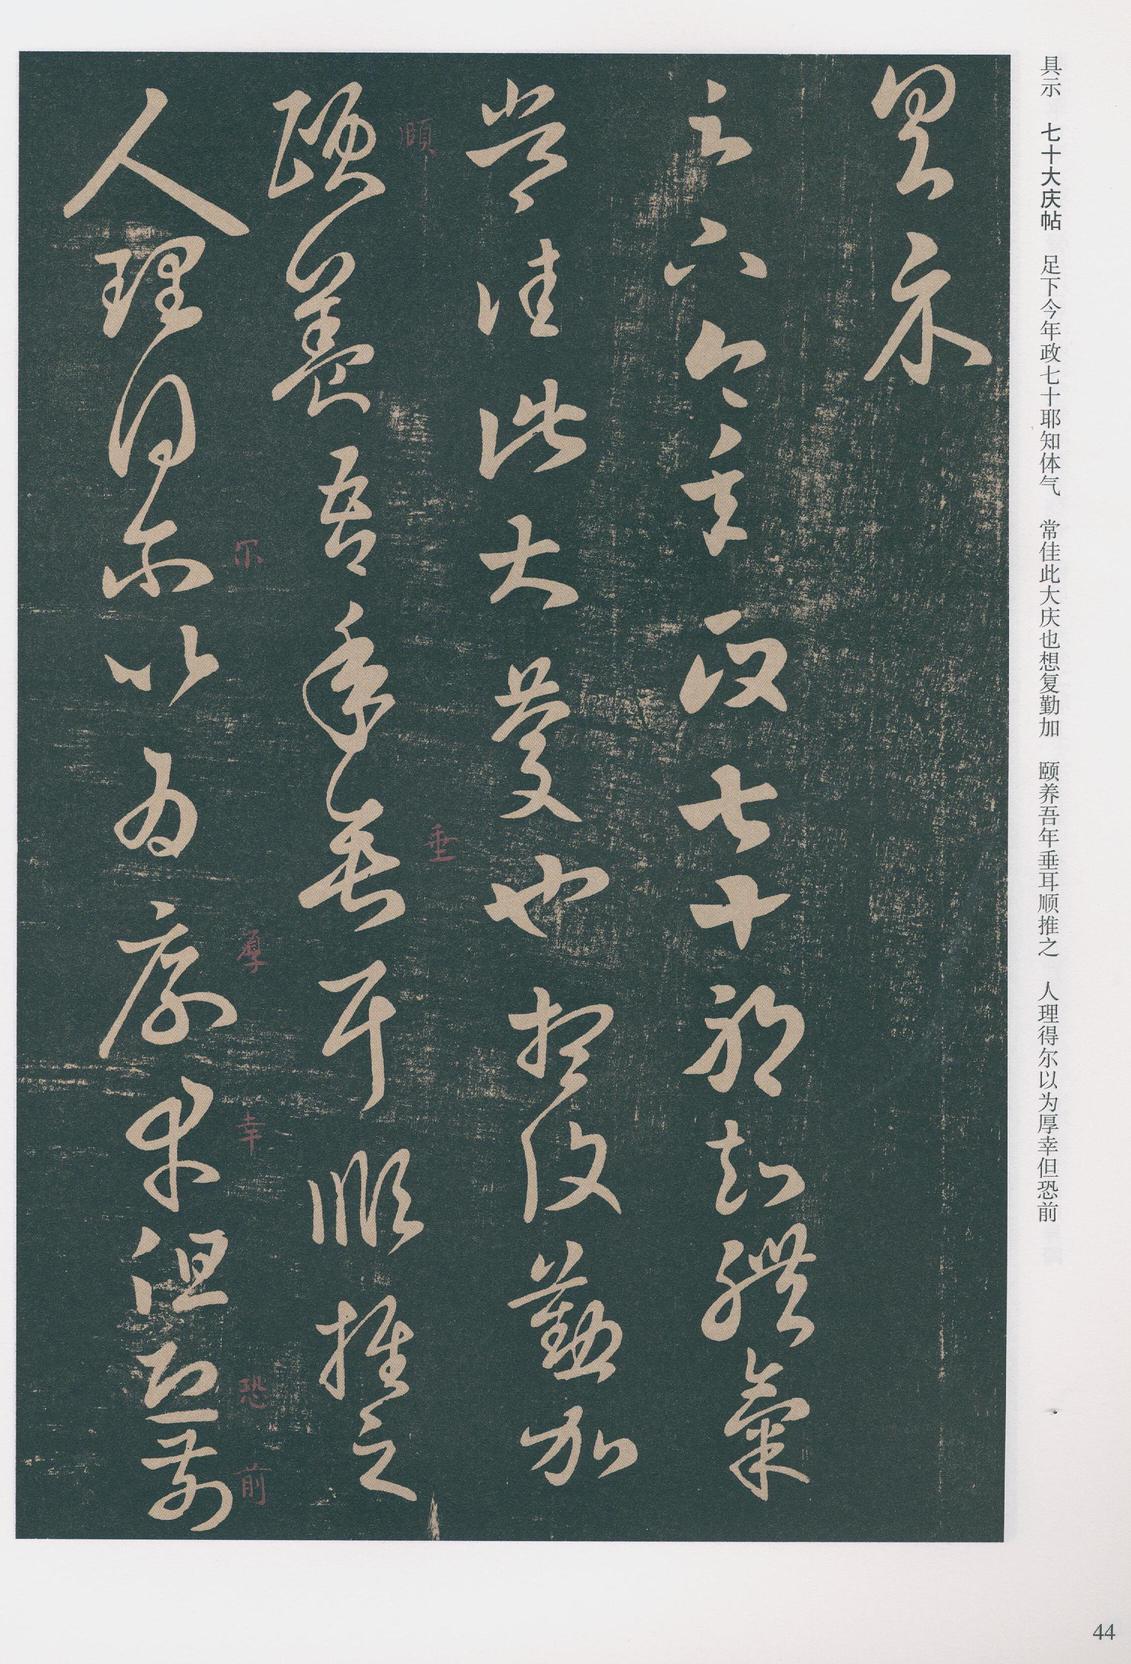 具示　七十大庆帖　足下今年政七十耶知体气　常佳此大庆也想复勤加　颐养吾年垂耳顺推之　人理得尔以为厚幸但恐前
具示
足下今年政七十耶知體氣
常佳此大慶也想復勤加
頤
頤養吾年垂耳順推之
垂
人理得尔以為厚幸但恐前
尔
厚
幸
恐
前
44